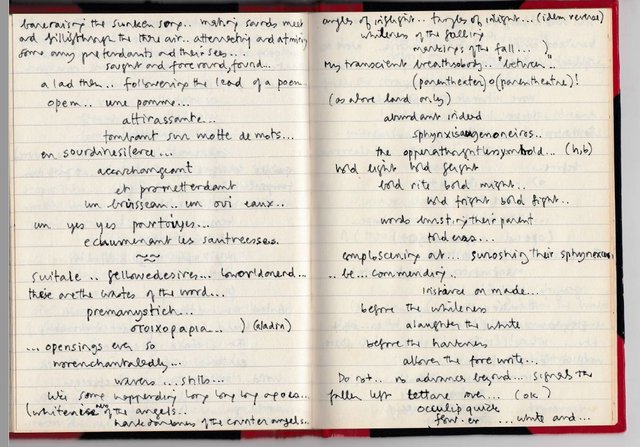 the sunken song.. making sounds meet
and through the air.. attenuating and
some any pretendants and their sees...
sought and foreround, found...
a lad then.. followering the lead of a poem..
opem.. une pomme...
attirassante...
tombant sur motte de mots...
en sourdinesilence...
accurchangeant
et promettendant
un buisseau.. un oui eaux..
un yes yes
ecumenant les
≈
suitale.. fellowedesires... loworldmend...
these are the wastes of the word...
premanystich...
στοιχοραρια...) (aladin)
... opensings ever so
norenchantaledly...
waves... shills...
Was some happending long long long agoes...
(whiteness of the angels..
harkdarkness of the counter angels..
angles of inflight.. tangles of inlight... (idem reverse)
whileness of the falling
markings of the fall...)
my transcient breathsbody.. "between"..
(parentheater) o (parentheatre)!
(as above land only)
abundant indeed
the opperathoughtlessymbold... (h,b)
bold light bold flight
bold rite bold might..
bold fright bold fight..
words bursting their parent
told eras...
out... their
.. be.. commending..
instance on made...
before the whileness
alaughter the white
before the harkness
allover the fore write...
Do not.. no advances beyond... signals the
fallen left lettare over... (ok)
occulip quick
four.er ... white and...